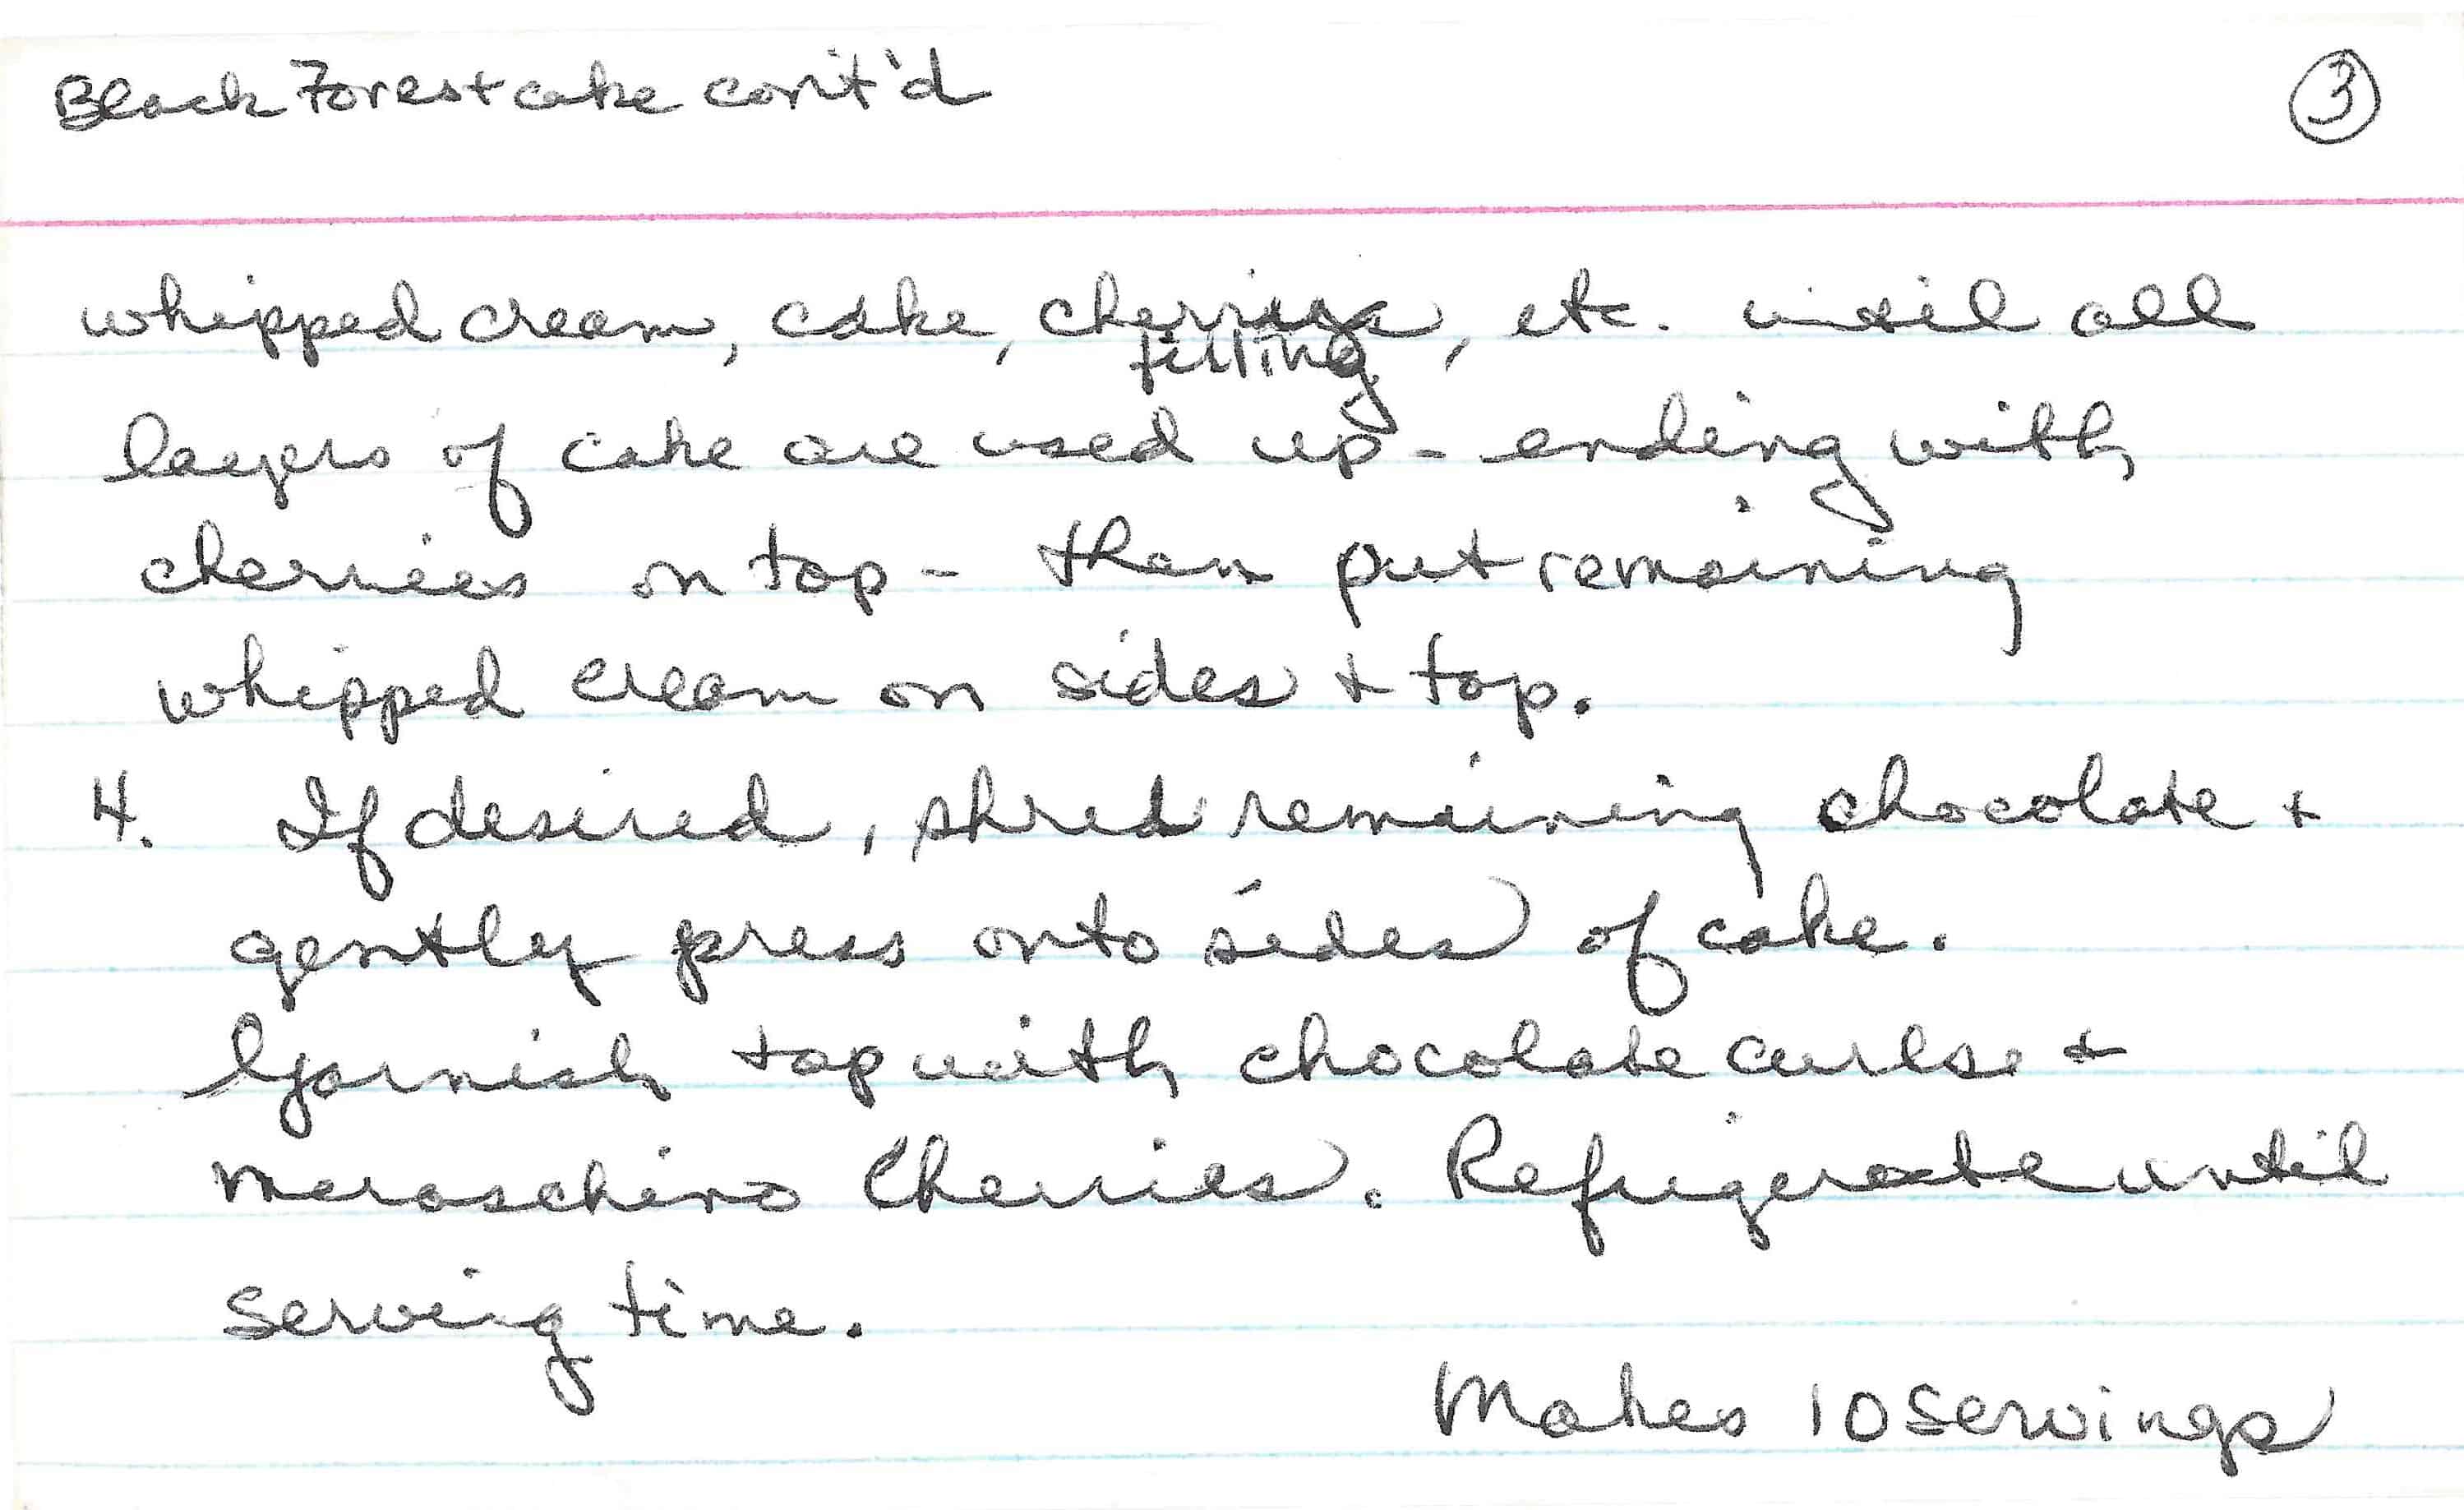 Black Forest cake cont'd
③
whipped cream, cake, cherries, etc. until all
filling
layers of cake are used up - ending with
cherries on top - then put remaining
whipped cream on sides & top.
4. If desired, shred remaining chocolate &
gently press onto sides of cake.
Garnish top with chocolate curls &
Maraschino Cherries. Refrigerate until
serving time.
Makes 10 servings